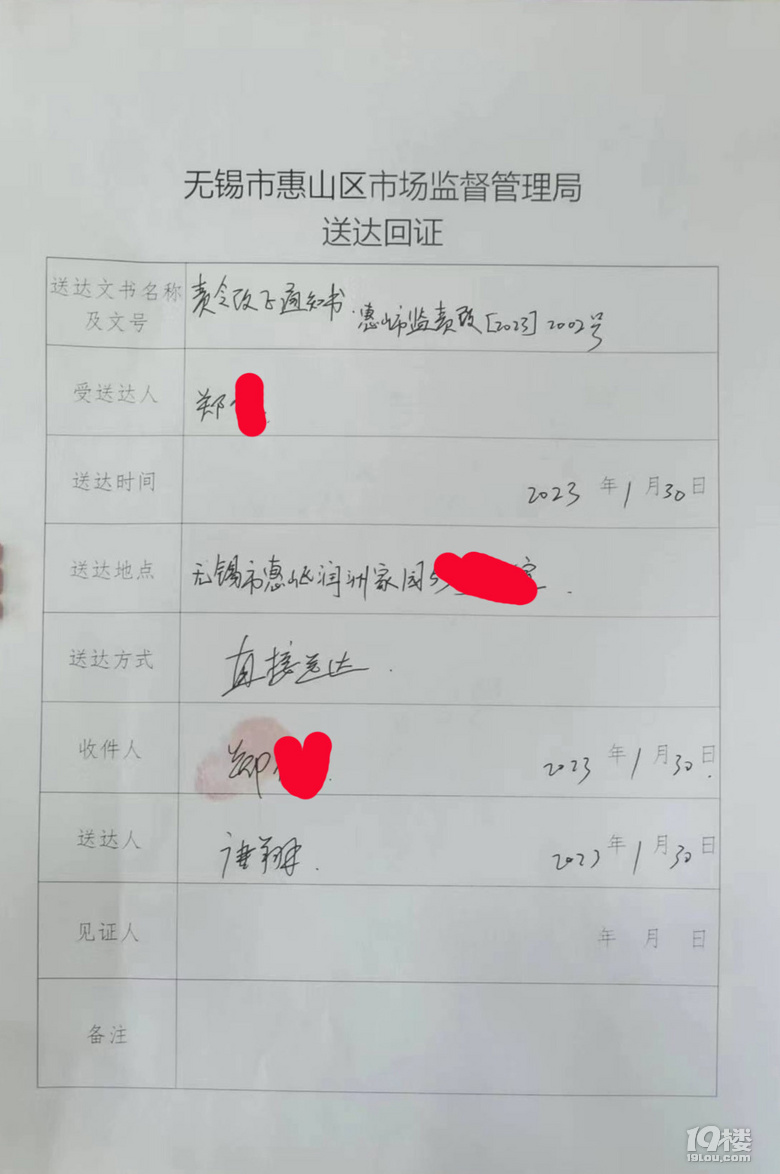 无锡市惠山区市场监督管理局
送达回证
送达文书名称及文号 责令改正通知书 惠市监责改[2023]2002号
受送达人 郑
送达时间 2023年1月30日
送达地点 无锡市惠山区润洲家园
送达方式 直接送达.
收件人 郑 2023年1月30日
送达人 唐翔. 2023年1月30日
见证人 年 月 日
备注
19楼
19lou.com